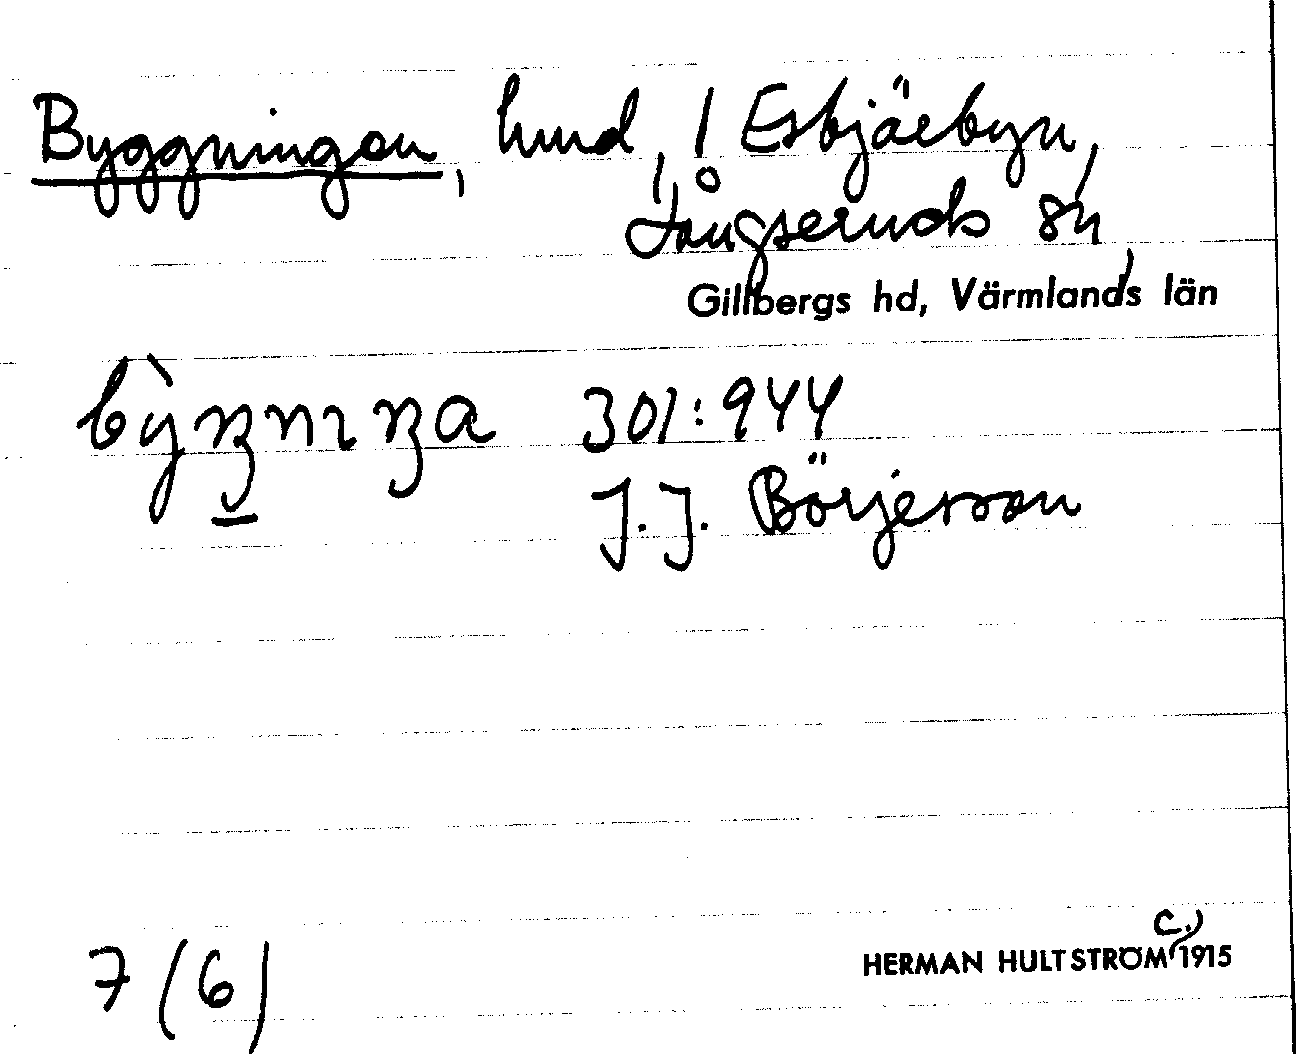 Byggningen, hmd, / Esbjörbyn,
Långseruds sn,
Gillbergs hd, Värmlands län
301:944
J. J. Börjesson
c.)
HERMAN HULTSTRÖM 1915
7 (6)